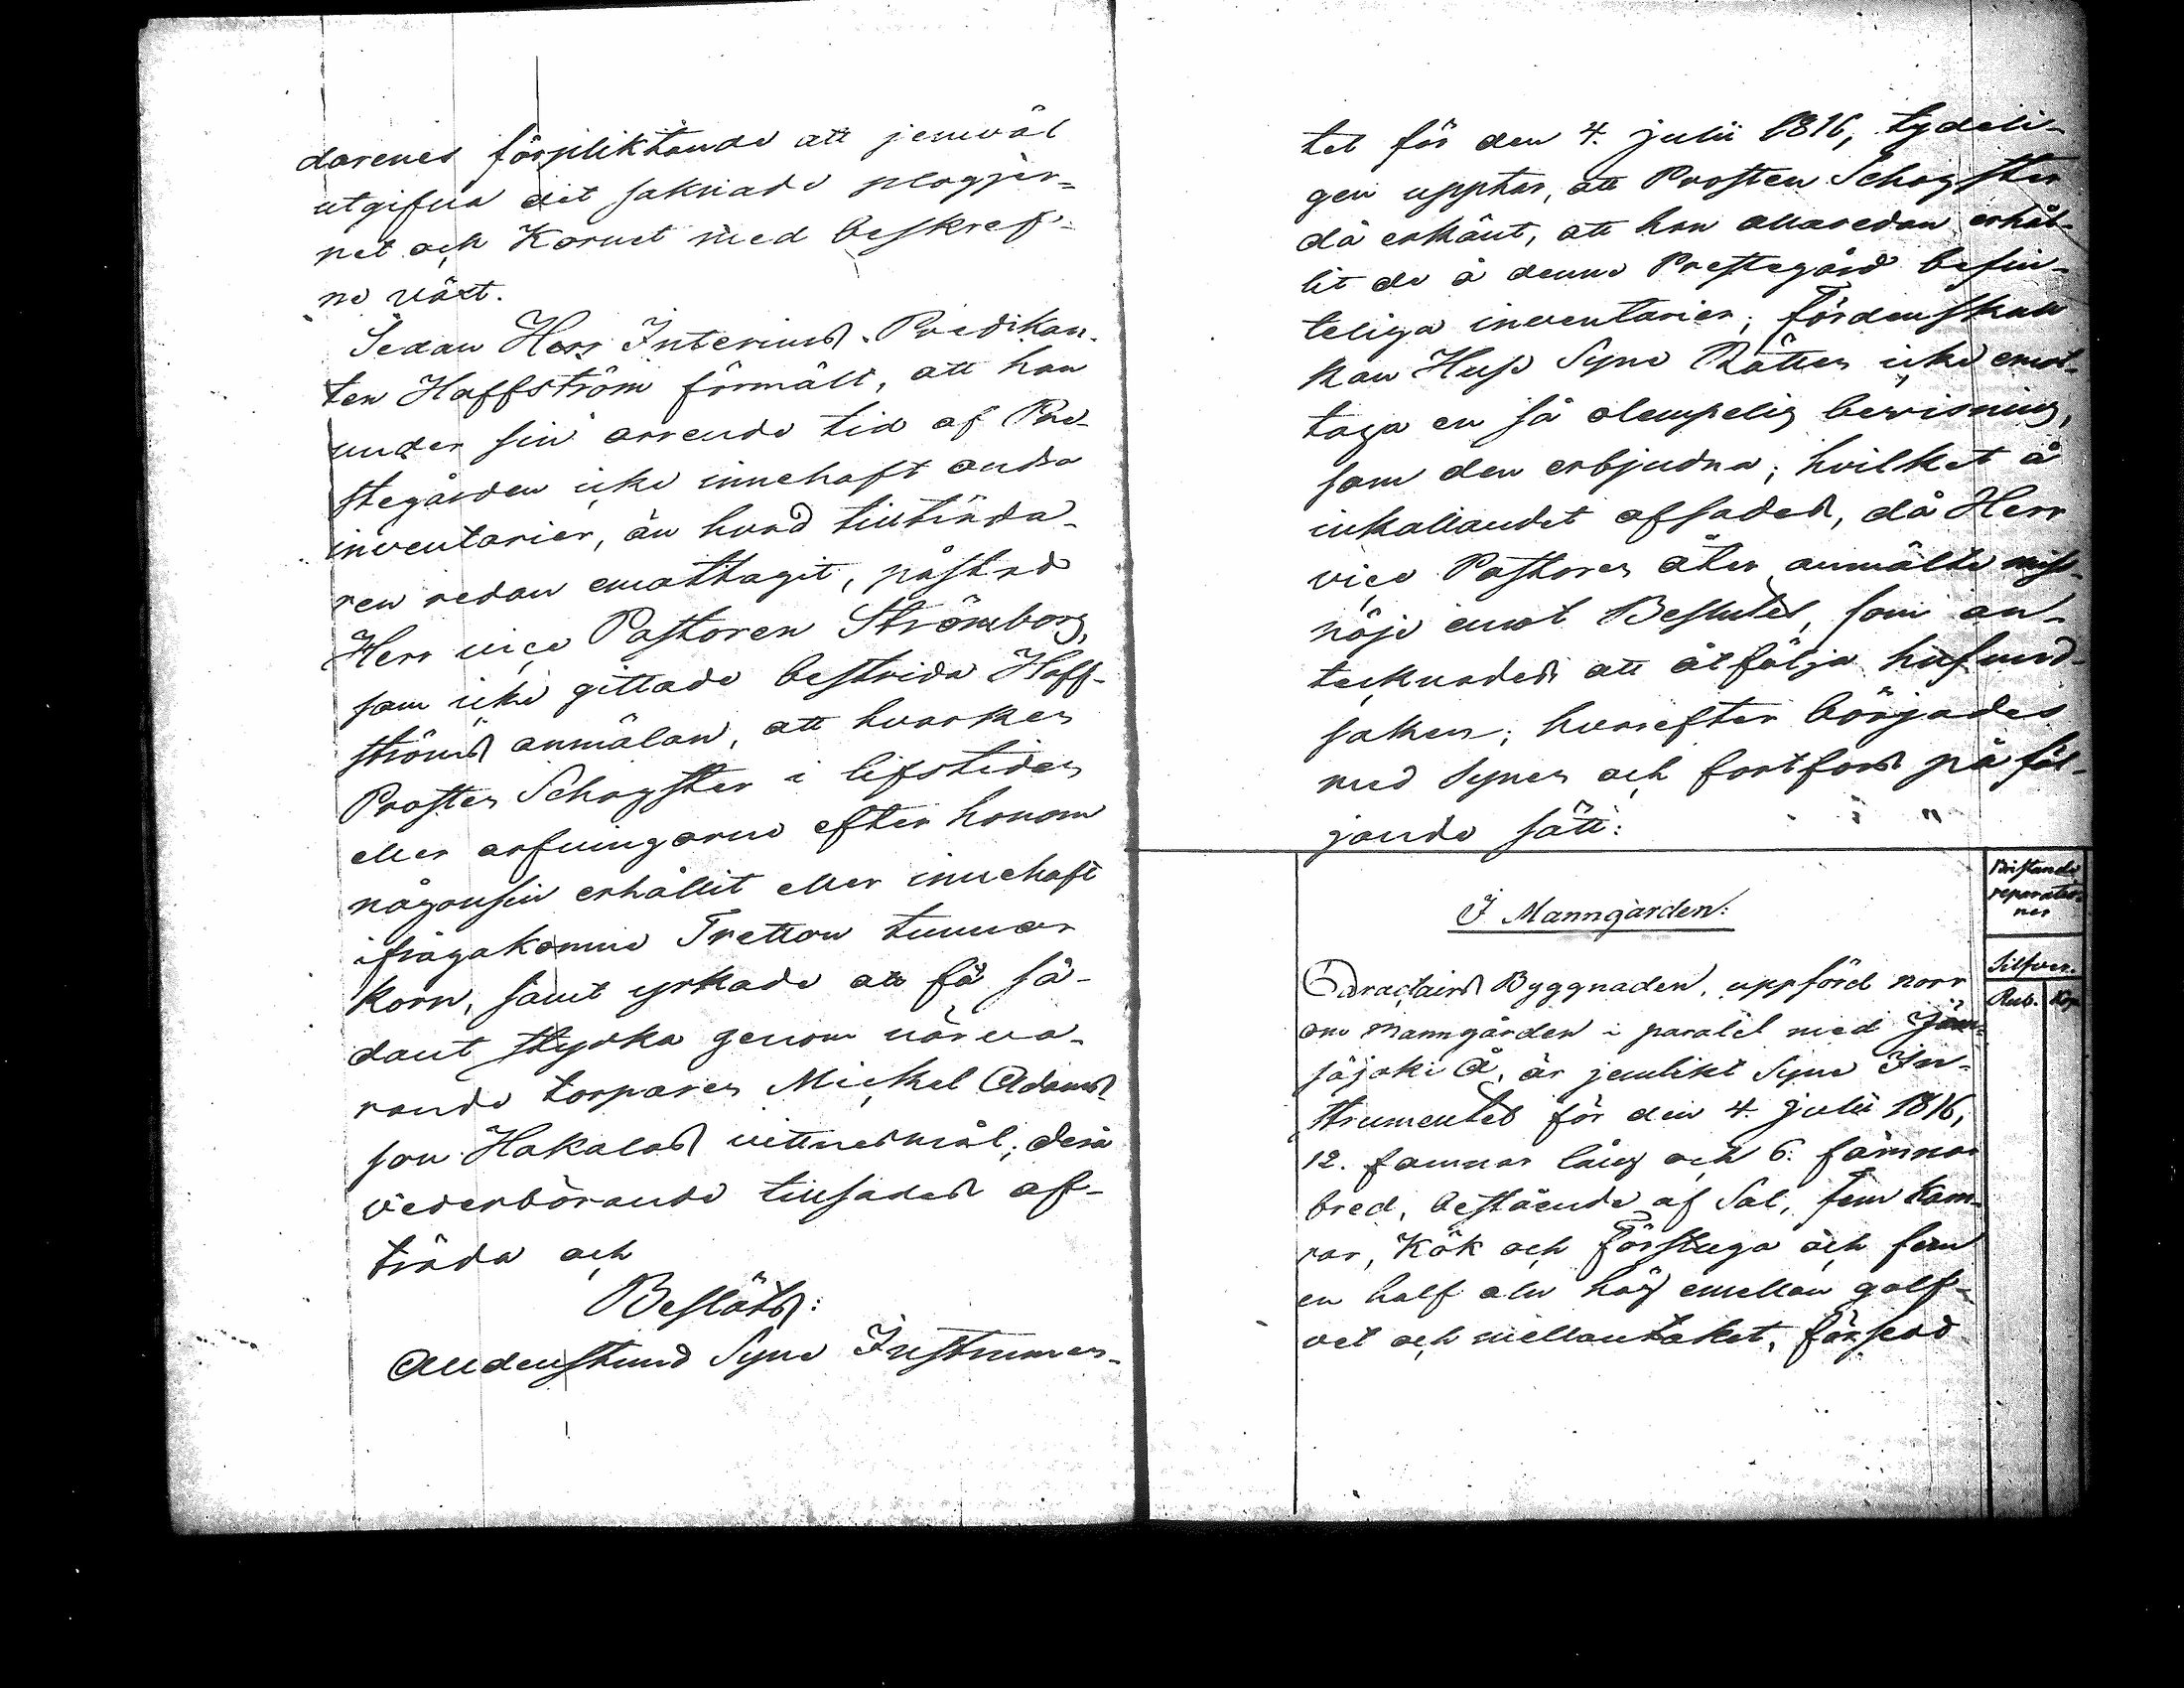 darenes förpliktande att jemväl
utgifva det saknade plogjer-
net och Kornet med beskref-
ne växt.
Sedan Herr Interims-Predikan-
ten Haffström förmält, att han
under sin arrende tid af Pre-
stegården icke innehaft andra
inventarier, än hvad tillträda-
ren redan emottagit, påstod
Herr vice Pastoren Strömborg,
som icke gittade bestrida Haff-
ströms anmälan, att hvarken
Prosten Schogster i lifstiden
eller arfvingarne efter honom
någonsin erhållit eller innehaft
ifrågakomne Tretton tunnor
Korn, samt yrkade att få så-
dant styrka genom närva-
rande torparen Michel Adams
son Hakalas vittnesmål; dera
vederbörande tillsades af-
träda och
Beslöts:
Alldenstund Syne Instrumen-
tet för den 4. julii 1816, tydeli-
gen upptar, att Prosten Schogster
då erkänt, att han allaredan erhål-
lit de å denne Prestegård befin-
teliga inventarier; fördenskull
kan Hvse Syne Rätten icke emot-
taga en så olempelig bevisning,
som den erbjudna; hvilket å
inkallandet afsades, då Herr
vice Pastoren åter anmälte miss-
nöje emot Beslutet, som an-
tecknades att åtfölja hufvud-
saken; hvarefter börjades
med Synen och fortfors på föl-
jande sätt:
Bristande
reparatio-
ner
I Manngården:
Silfver.
Rub. Kop
Caractairs Byggnaden, uppförd norr
om manngården i paralel med Jäm-
säjoki Å, är jemlikt Syne In-
strumentet för den 4. julii 1816,
12. famnar lång och 6. famnar
bred, bestående af Sal, fem Kam-
rar, Kök och Förstuga och fem
en half aln hög emellan golf-
vet och mellantaket, försedd